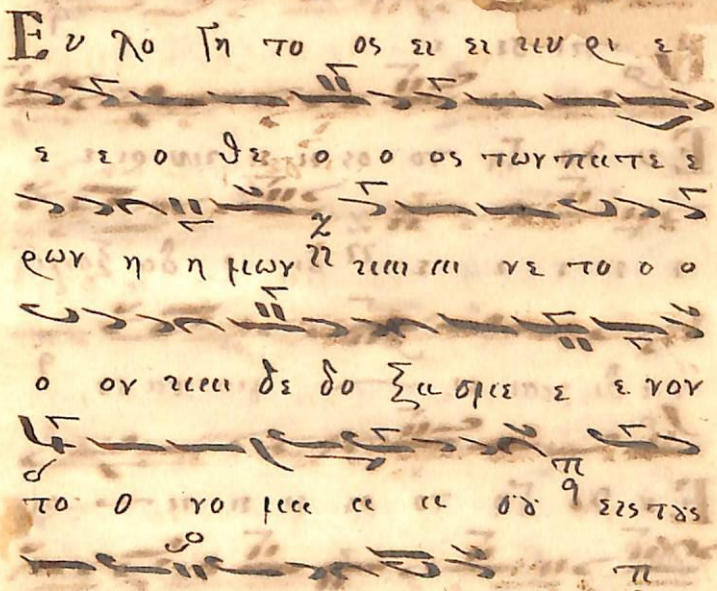 Ευ λο γη το ος ει ει κυ ρι ε
ε ε ο θε ο ο ος των πα τε ε
ρων η η μων και αι νε το ο ο
ο ον και δε δο ξα σμε ε ε νον
το ο νο μα α α σου εις τους